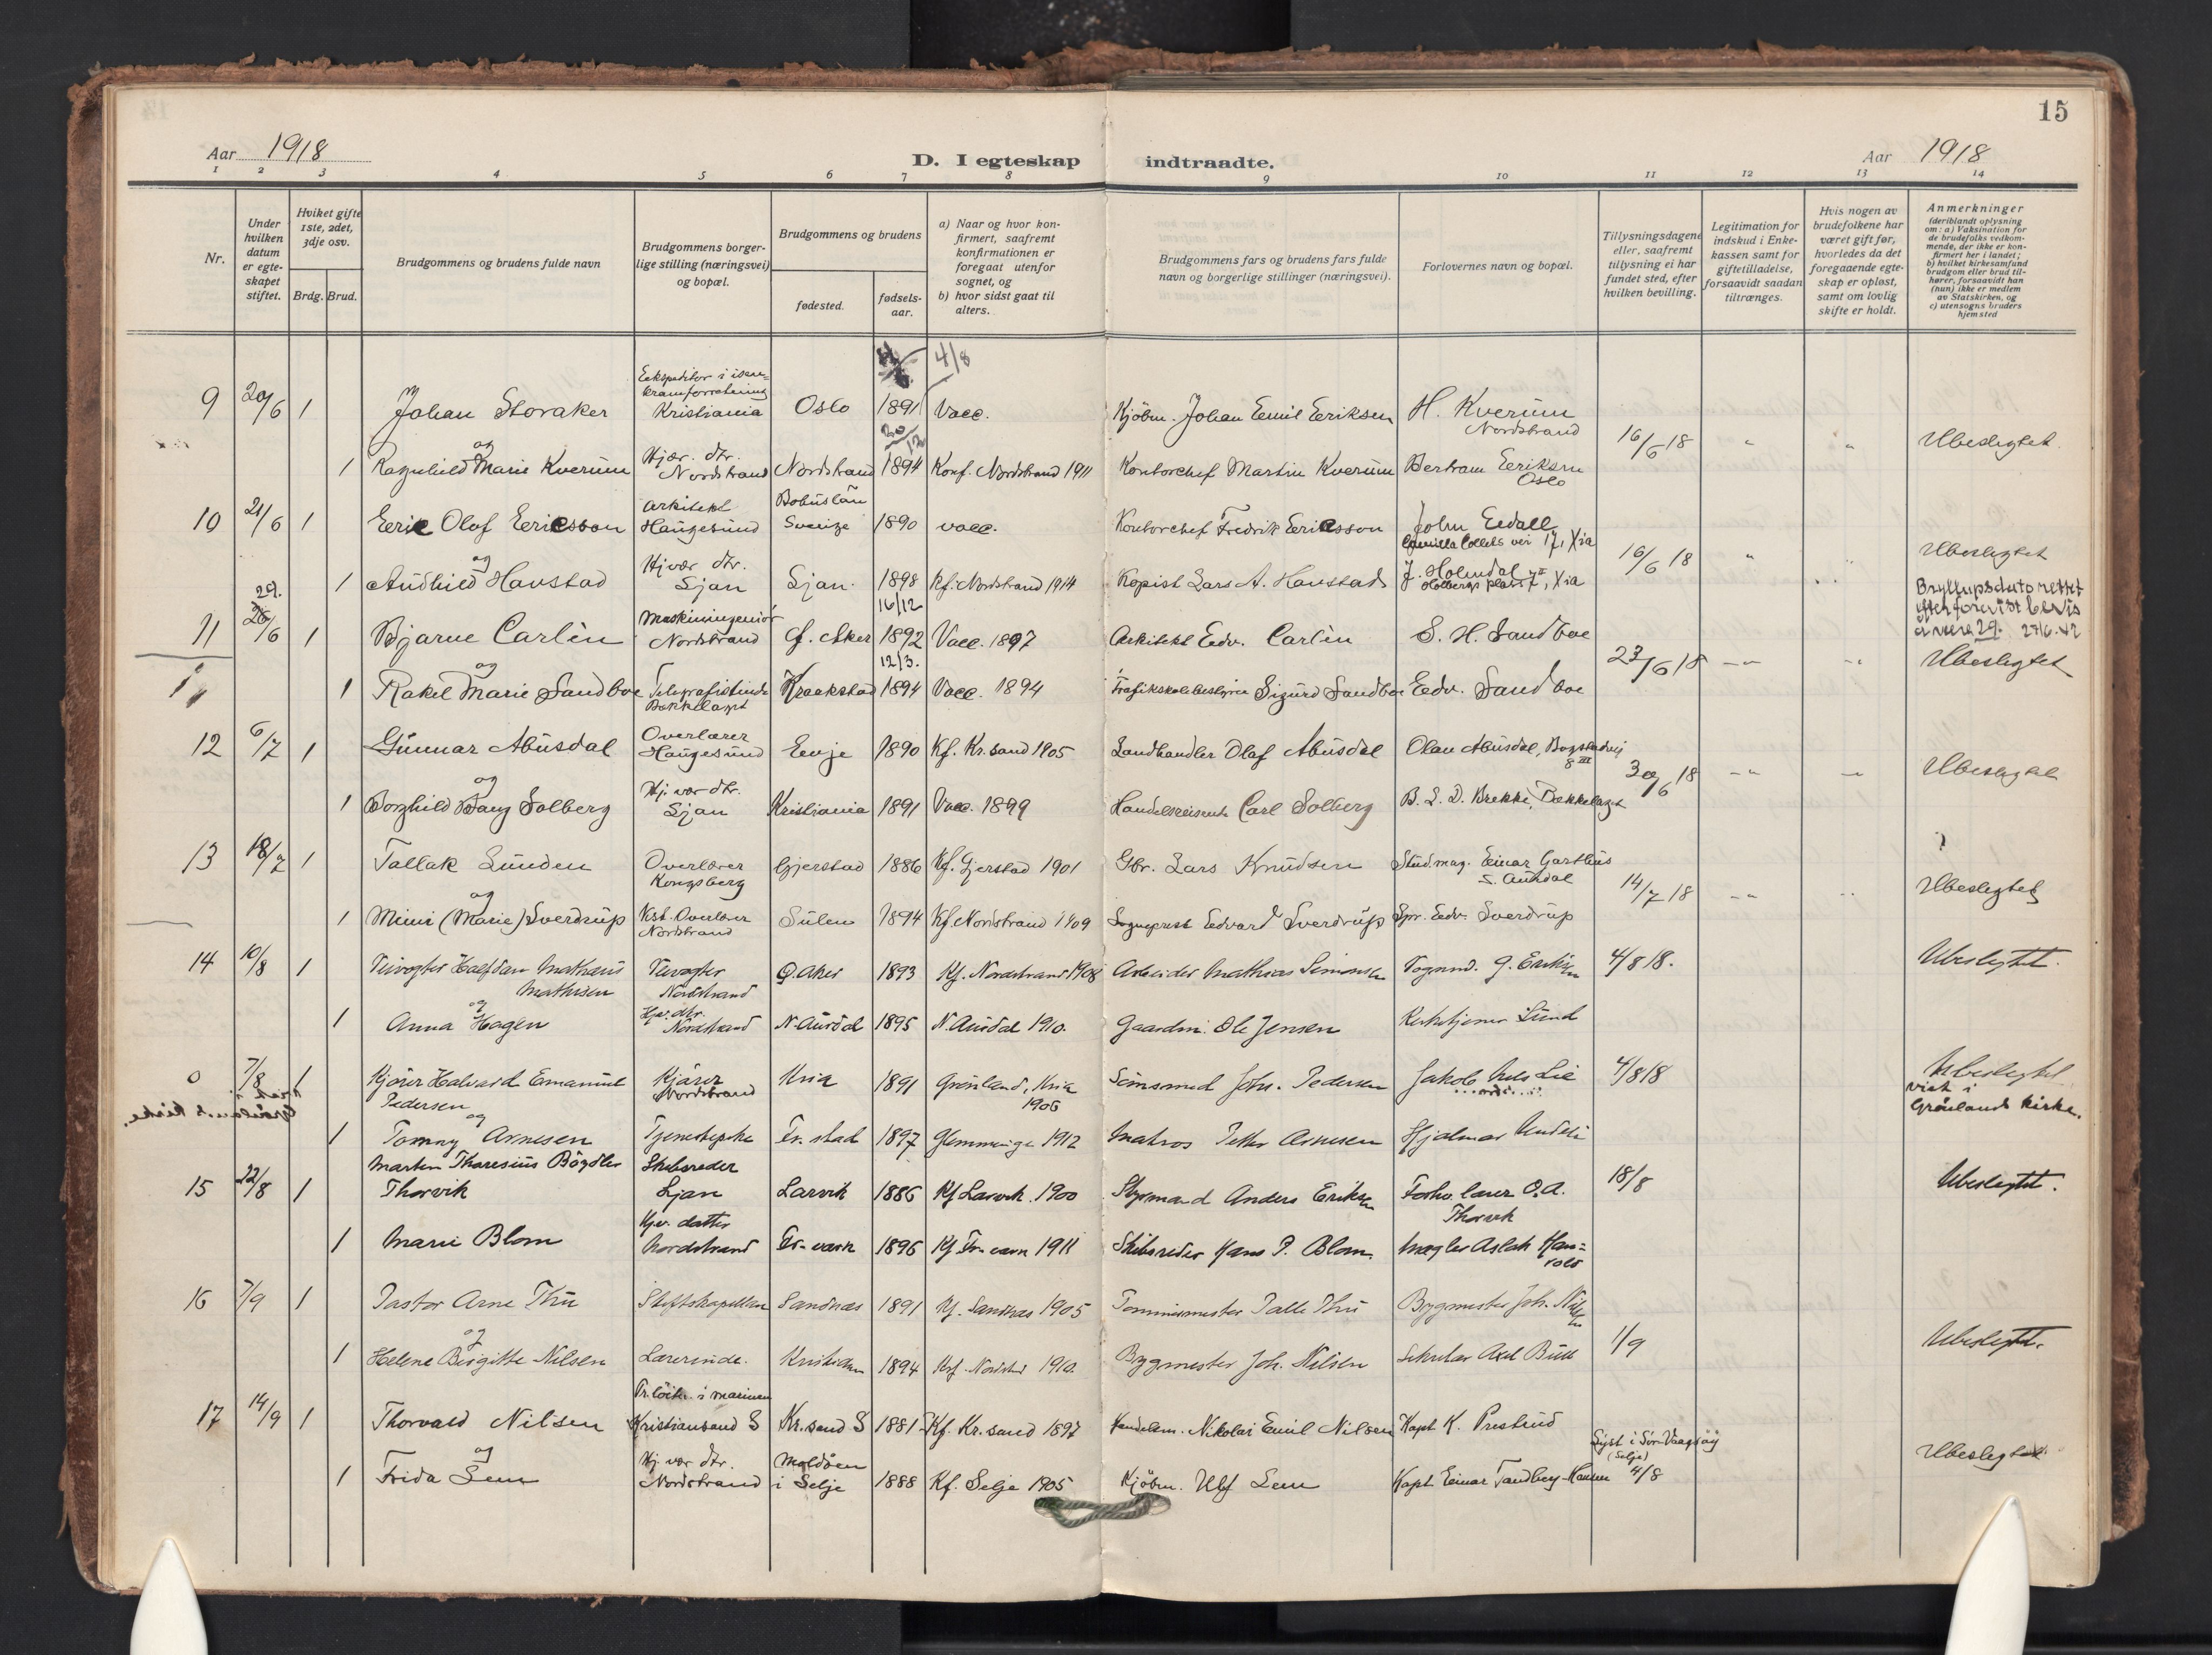 15
Aar 1918
D. I egteskap indtraadte.
Aar 1918
1 2 3 4 5 6 7 8 9 10 11 12 13 14
Nr.
Under hvilken datum er egteskapet stiftet.
Hviket gifte 1ste, 2det, 3dje osv.
Brdg. Brud.
Brudgommens og brudens fulde navn
Brudgommens borgerlige stilling (næringsvei) og bopæl.
Brudgommens og brudens
fødested.
fødselsaar.
a) Naar og hvor konfirmert, saafremt konfirmationen er foregaat utenfor sognet, og
b) hvor sidst gaat til alters.
Brudgommens fars og brudens fars fulde navn og borgerlige stillinger (næringsvei).
Forlovernes navn og bopæl.
Tillysningsdagene eller, saafremt tillysning ei har fundet sted, efter hvilken bevilling.
Legitimation for indskud i Enkekassen samt for giftetilladelse, forsaavidt saadan tiltrænges.
Hvis nogen av brudefolkene har været gift før, hvorledes da det foregaaende egteskap er opløst, samt om lovlig skifte er holdt.
Anmerkninger (deriblandt oplysning om: a) Vaksination for de brudefolks vedkommende, der ikke er konfirmert her i landet; b) hvilket kirkesamfund brudgom eller brud tilhører, forsaavidt han (hun) ikke er medlem av Statskirken, og c) utensogns bruders hjemsted
4/8
Ekspeditør i isenkramforretning
9 20/6 1 Johan Storaker Kristiania Oslo 1891 Vacc. Kjøbm. Johan Emil Eriksen H. Kverum Nordstrand
og
20/12
16/6 18 " " Ubeslegtet
1 Ragnhild Marie Kverum Hjær. dtr. Nordstrand Nordstrand 1894 Konf. Nordstrand 1911 Kontorchef Martin Kverum Bertram Eriksen Oslo
10 21/6 1 Eric Olof Ericsson Arkitekt Haugesund Bohuslän Sverige 1890 vacc. Kontorchef Fredrik Ericsson John Eedall Camilla Colletts vei 17, Xia
og
16/6 18 " " Ubeslegtet
1 Audhild Havstad Hjvær dtr. Ljan Ljan. 1898 Kf. Nordstrand 1914 Kopist Lars A. Havstad J. Holmdal Holbergs plass 7 II, Xia
Bryllupsdato rettet efter forevist bevis å være 29. 27/6.42
29.
16/12
11 26/6 1 Bjarne Carlèn Maskiningeniør Nordstrand Ø. Aker 1892 Vacc. 1897 Arkitekt Edv. Carlèn S. H. Sandboe
og
12/3.
23/6 18 Ubeslegtet
1 Rakel Marie Sandboe Telegrafistinde Bækkelaget Kraakstad 1894 Vacc. 1894 Trafikskolebestyrer Sigurd Sandboe Edv. Sandboe
12 6/7 1 Gunnar Abusdal Overlærer Haugesund Evje 1890 Kf. Kr.sand 1905 Landhandler Olaf Abusdal Olav Abusdal, Bogstadvej 8 III
og
30/6 18 Ubeslegtet
1 Borghild Bang Solberg Hj. vær dtr. Ljan Kristiania 1891 Vacc. 1899 Handelsreisende Carl Solberg B. L. D. Brekke, Bækkelaget
13 18/7 1 Tallak Lunden Overlærer Kongsberg Gjerstad 1886 Kf. Gjerstad 1901 Gbr. Lars Knudsen Stud. mag. Einar Garthus S. Aurdal
og
14/7 18 Ubeslegtet
1 Mimi (Marie) Sverdrup Kst. Overlærer Nordstrand Sulen 1894 Kf. Nordstrand 1909 Sogneprest Edvard Sverdrup Spr. Edv. Sverdrup
14 10/8 1 Halfdan Mathæus Mathisen Nordstrand Ø. Aker 1893 Kf. Nordstrand 1908 Arbeider Mathias Simonsen Vognmd. G. Eriksen 4/8 18. Ubeslegtet.
og
1 Anna Hagen Hjv. dtr. Nordstrand N. Aurdal 1895 N. Aurdal 1910. Gaardm. Ole Jensen Kirketjener Lund
0 7/8 1 Kjører Halvard Emanuel Pedersen Kjører Nordstrand Kria 1891 Grønland, Kria 1906 Johs. Pedersen Jakob Lie 4/8 18 Ubeslegtet
viet i Grønlands Kirke.
og
viet i Grønlands Kirke.
1 Tommy Arnesen Tjenestepike Fr. stad 1897 Glemminge 1912 Matros Petter Arnesen Hjalmar
15 22/8 1 Marten Tharesius Bøgdler Thorvik Skibsreder Ljan Larvik 1886 Kf Larvik. 1900 Styrmand Anders Eriksen O. A. Thorvik 18/8 Ubeslegtet.
1 Marie Blom Hjv. datter Nordstrand Fr.værn 1896 Kf Fr.værn 1911 Skibsreder Hans P. Blom. Mægler Aslak
16 7/9 1 Pastor Arne Thu Stiftskapellan Sandnæs 1891 Kf. Sandnæs 1905 Tømmermester Palle Thu Bygmester Joh. Nilsen
og
1/9 Ubeslegtet.
1 Helene Birgitte Nilsen Lærerinde. Kristiania 1894 Kf. Nordstrd 1910. Bygmester Joh. Nilsen Sekretær Axel Bull
17 14/9 1 Thorvald Nilsen Pr. løit. i marinen Kristiansand S Kr.sand S 1881 Kf. Kr.sand 1897 Handelsm. Nikolai Emil Nilsen Kapt K. Prestrud
og
Lyst i Sør-Vaagsøy (Selje) 4/8
Ubeslegtet
1 Frida Lem Hj. vær dtr. Nordstrand Moldøen i Selje 1888 Kf. Selje 1905 Kjøbm. Ulf Lem Kapt Einar Tandberg-Hansen